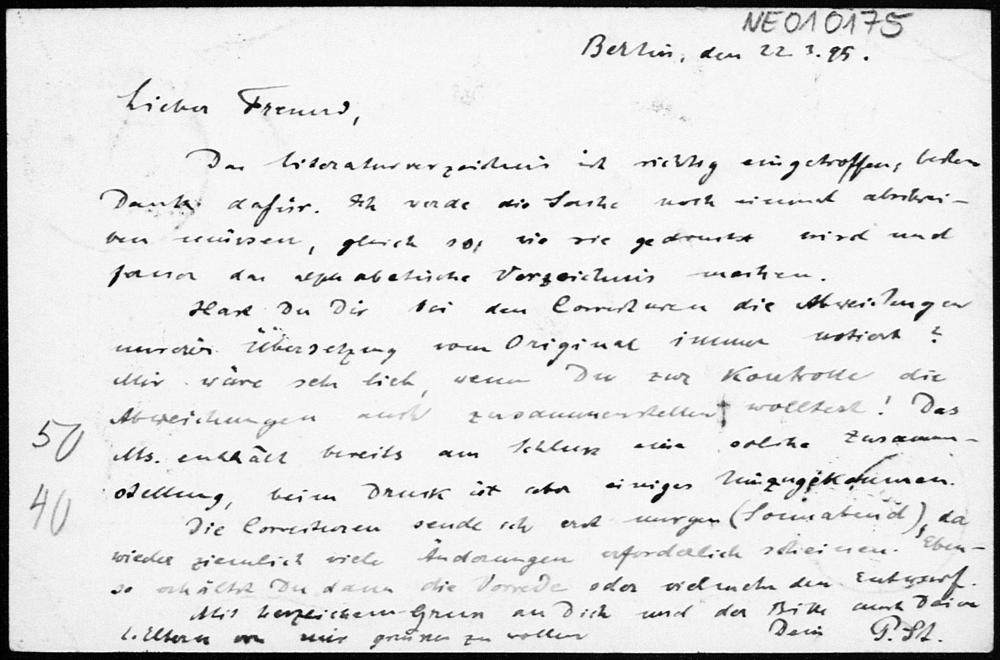 NE010175
Berlin, den 22.3.95.
Lieber Freund,
Das Literaturverzeichnis ist richtig eingetroffen, besten
Dank dafür. Ich werde die Sache noch einmal abschrei-
ben müssen, gleich so, wie sie gedruckt wird und
ferner das alphabetische Verzeichnis machen.
Hast Du Dir bei den Correcturen die Abweichungen
unserer Übersetzung vom Original immer notiert?
Mir wäre sehr lieb, wenn Du zur Kontrolle die
Abweichungen auch zusammenstellen wolltest! Das
Ms. enthält bereits am Schluss eine solche Zusammen-
stellung, beim Druck ist aber einiges hinzugekommen.
Die Correcturen sende ich erst morgen (Sonnabend), da
wieder ziemlich viele Änderungen erforderlich scheinen. Eben-
so erhältst Du dann die Vorrede oder vielmehr den Entwurf.
Mit herzlichem Gruss an Dich und der Bitte auch Deine
l. Eltern von mir grüssen zu wollen
Dein P. St.
50
40